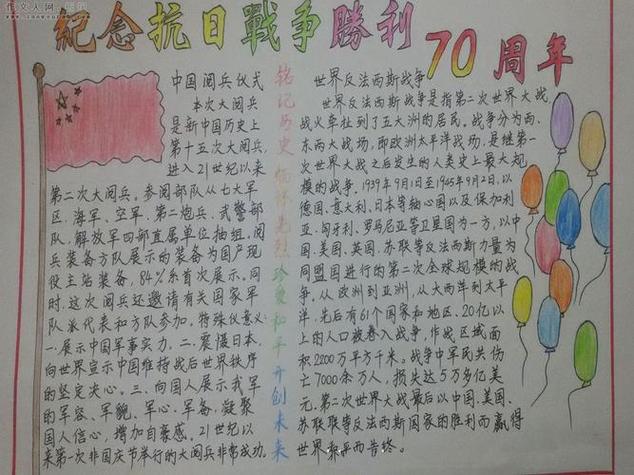 作文人网
纪念抗日戰争勝利70周年
中国阅兵仪式
本次大阅兵
是新中国历史上
第十五次大阅兵,
进入21世纪以来
第二次大阅兵。参阅部队从七大军
区、海军、空军、第二炮兵、武警部
队、解放军四部直属单位抽组,阅
兵装备方队展示的装备为国产现
役主站装备,84%系首次展示。同
时,这次阅兵还邀请有关国家军
队派代表和方队参加。特殊仪意义:
一.展示中国军事实力。二.震慑日本,
向世界宣示中国维持战后世界秩序
的坚定决心。三.向国人展示我军
的军容、军貌、军心、军备,凝聚
国人信心,增加自豪感。21世纪以
来第一次非国庆节举行的大阅兵非常成功。
铭记历史 缅怀先烈 珍爱和平 开创未来
世界反法西斯战争
世界反法西斯战争是指第二次世界大战,
战火牵扯到了五大洲的居民。战争分为西、
东两大战场,即欧洲太平洋战场,是继第一
次世界大战之后发生的人类史上最大规
模的战争。1939年9月1日至1945年9月2日,以
德国、意大利、日本等轴心国以及保加利
亚、匈牙利、罗马尼亚等卫星国为一方,以中
国、美国、英国、苏联等反法西斯力量为
同盟国进行的第二次全球规模的战
争。从欧洲到亚洲,从大西洋到太平
洋,先后有61个国家和地区、20亿以
上的人口被卷入战争,作战区域面
积2200万平方千米。战争中军民共伤
亡7000余万人,损失达5万多亿美
元。第二次世界大战最后以中国、美国、
苏联等反法西斯国家的胜利而赢得
世界和平而告终。